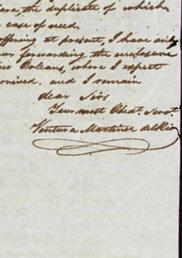 have, the duplicate of which
case of need.
offering at present, I have only
forwarding the enclosed
Orleans, where I expect
and I remain
dear Sirs
Your most Obedt. Servt.
Ventura Martinez del Rio